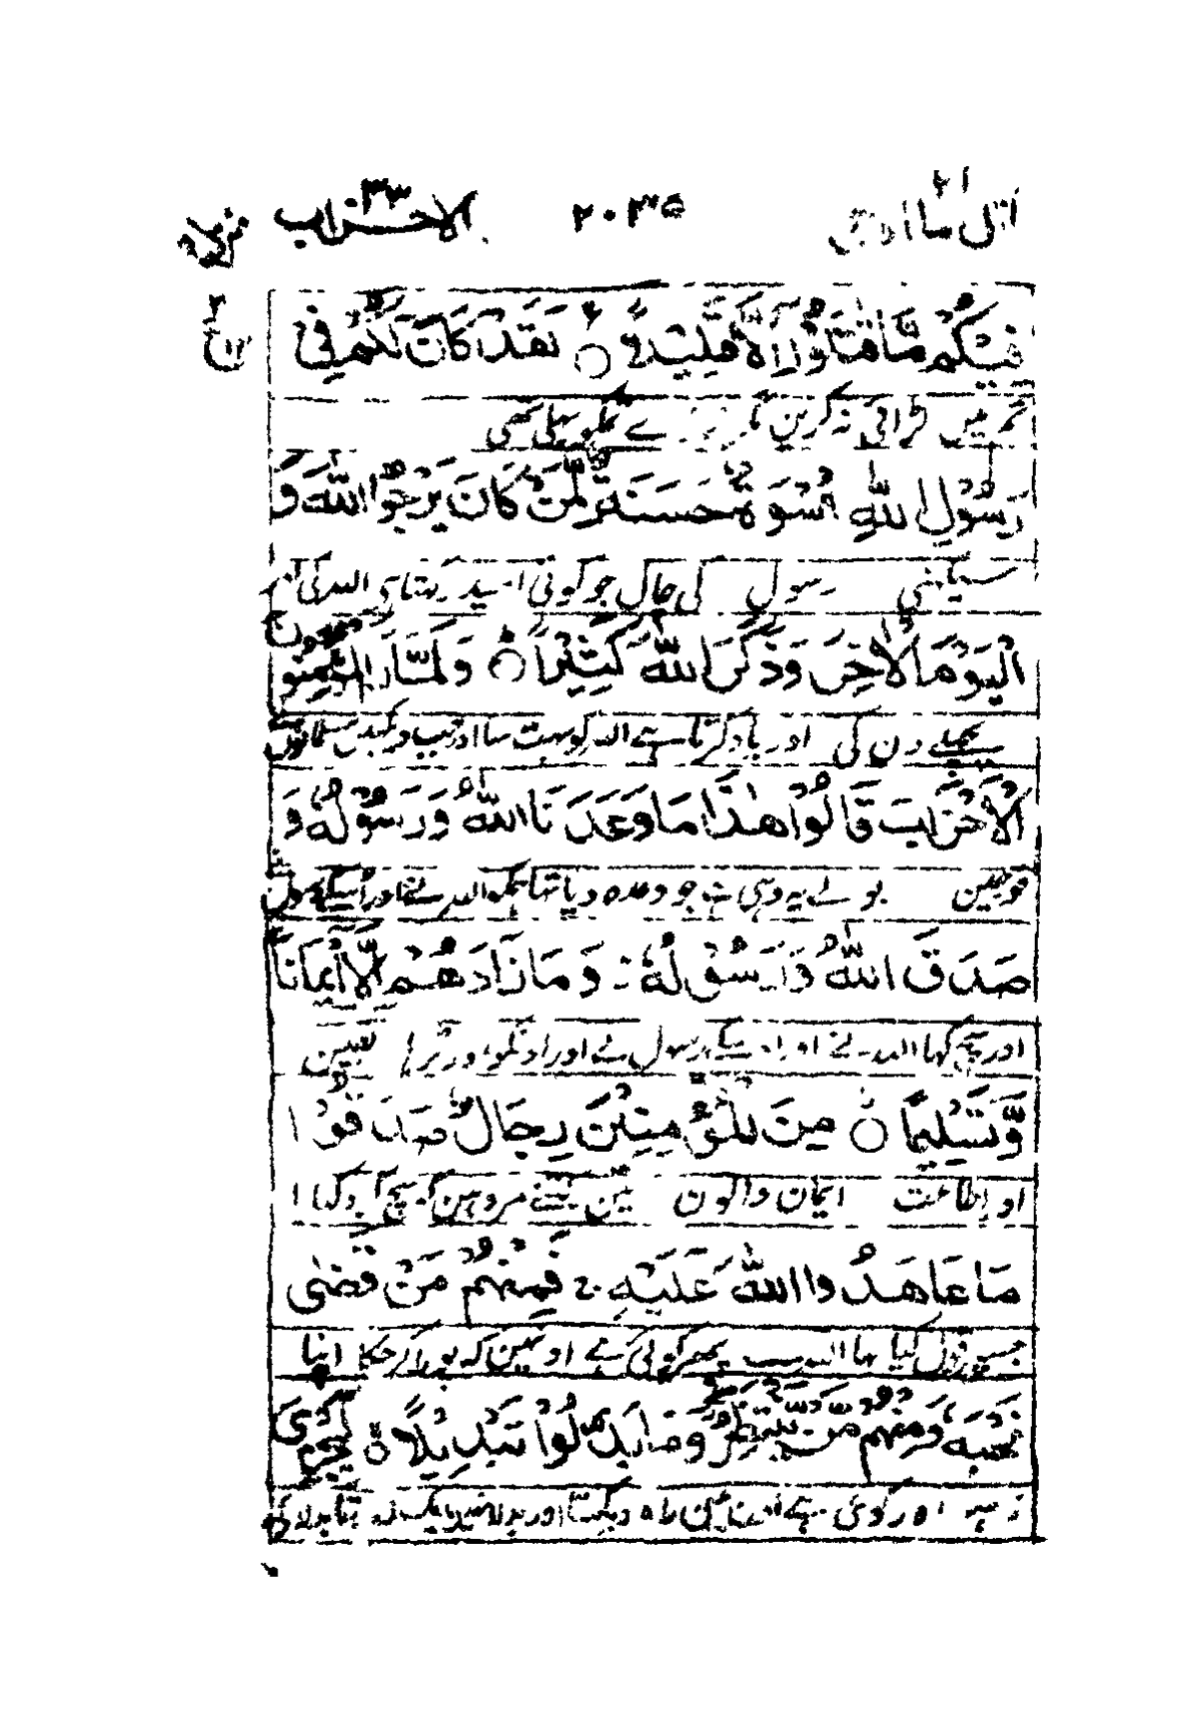 اتل ما اوحی ٢١ ٢٠٣٥ الاحزاب ٣٣
فِيْكُمْ مَّا قٰتَلُوْٓا اِلَّا قَلِيْلًا ۝ لَقَدْ كَانَ لَكُمْ فِيْ
تم میں لڑائی نہ کریں مگر تھوڑے تمکو بھلی تھی
رَسُوْلِ اللّٰهِ اُسْوَةٌ حَسَنَةٌ لِّمَنْ كَانَ يَرْجُوا اللّٰهَ وَ
سیکھنی رسول کی چال جو کوئی امید رکھتا ہی اللہ کی اور
الْيَوْمَ الْاٰخِرَ وَذَكَرَ اللّٰهَ كَثِيْرًا ۝ وَلَمَّا رَاَ الْمُؤْمِنُوْنَ
پچھلے دن کی اور یاد کرتا ہے اللہ کو بہت سا اور جب دیکھیں مسلمانوں
الْاَحْزَابَ قَالُوْا هٰذَا مَا وَعَدَنَا اللّٰهُ وَرَسُوْلُهٗ وَ
فوجیں بولے یہ وہی ہے جو وعدہ دیا تھا ہمکو اللہ نے اور اسکے رسول
صَدَقَ اللّٰهُ وَرَسُوْلُهٗ وَمَا زَادَهُمْ اِلَّآ اِيْمَانًا
اور سچ کہا اللہ نے اور اسکے رسول نے اور انکو اور بڑھا یقین
وَّتَسْلِيْمًا ۝ مِنَ الْمُؤْمِنِيْنَ رِجَالٌ صَدَقُوْا
اور اطاعت ایمان والوں میں کتنے مرد ہیں کہ سچ کر دکھایا
مَا عَاهَدُوا اللّٰهَ عَلَيْهِ فَمِنْهُمْ مَّنْ قَضٰى
جسپر قول کیا تھا اللہ سے پھر کوئی ہے اونمیں کہ پورا کر چکا اپنا
نَحْبَهٗ وَمِنْهُمْ مَّنْ يَّنْتَظِرُ وَمَا بَدَّلُوْا تَبْدِيْلًا ۝ لِّيَجْزِيَ
ذمہ اور کوئی ہے اونمیں راہ دیکھتا اور بدلا نہیں ایک ذرہ تا بدلا دے